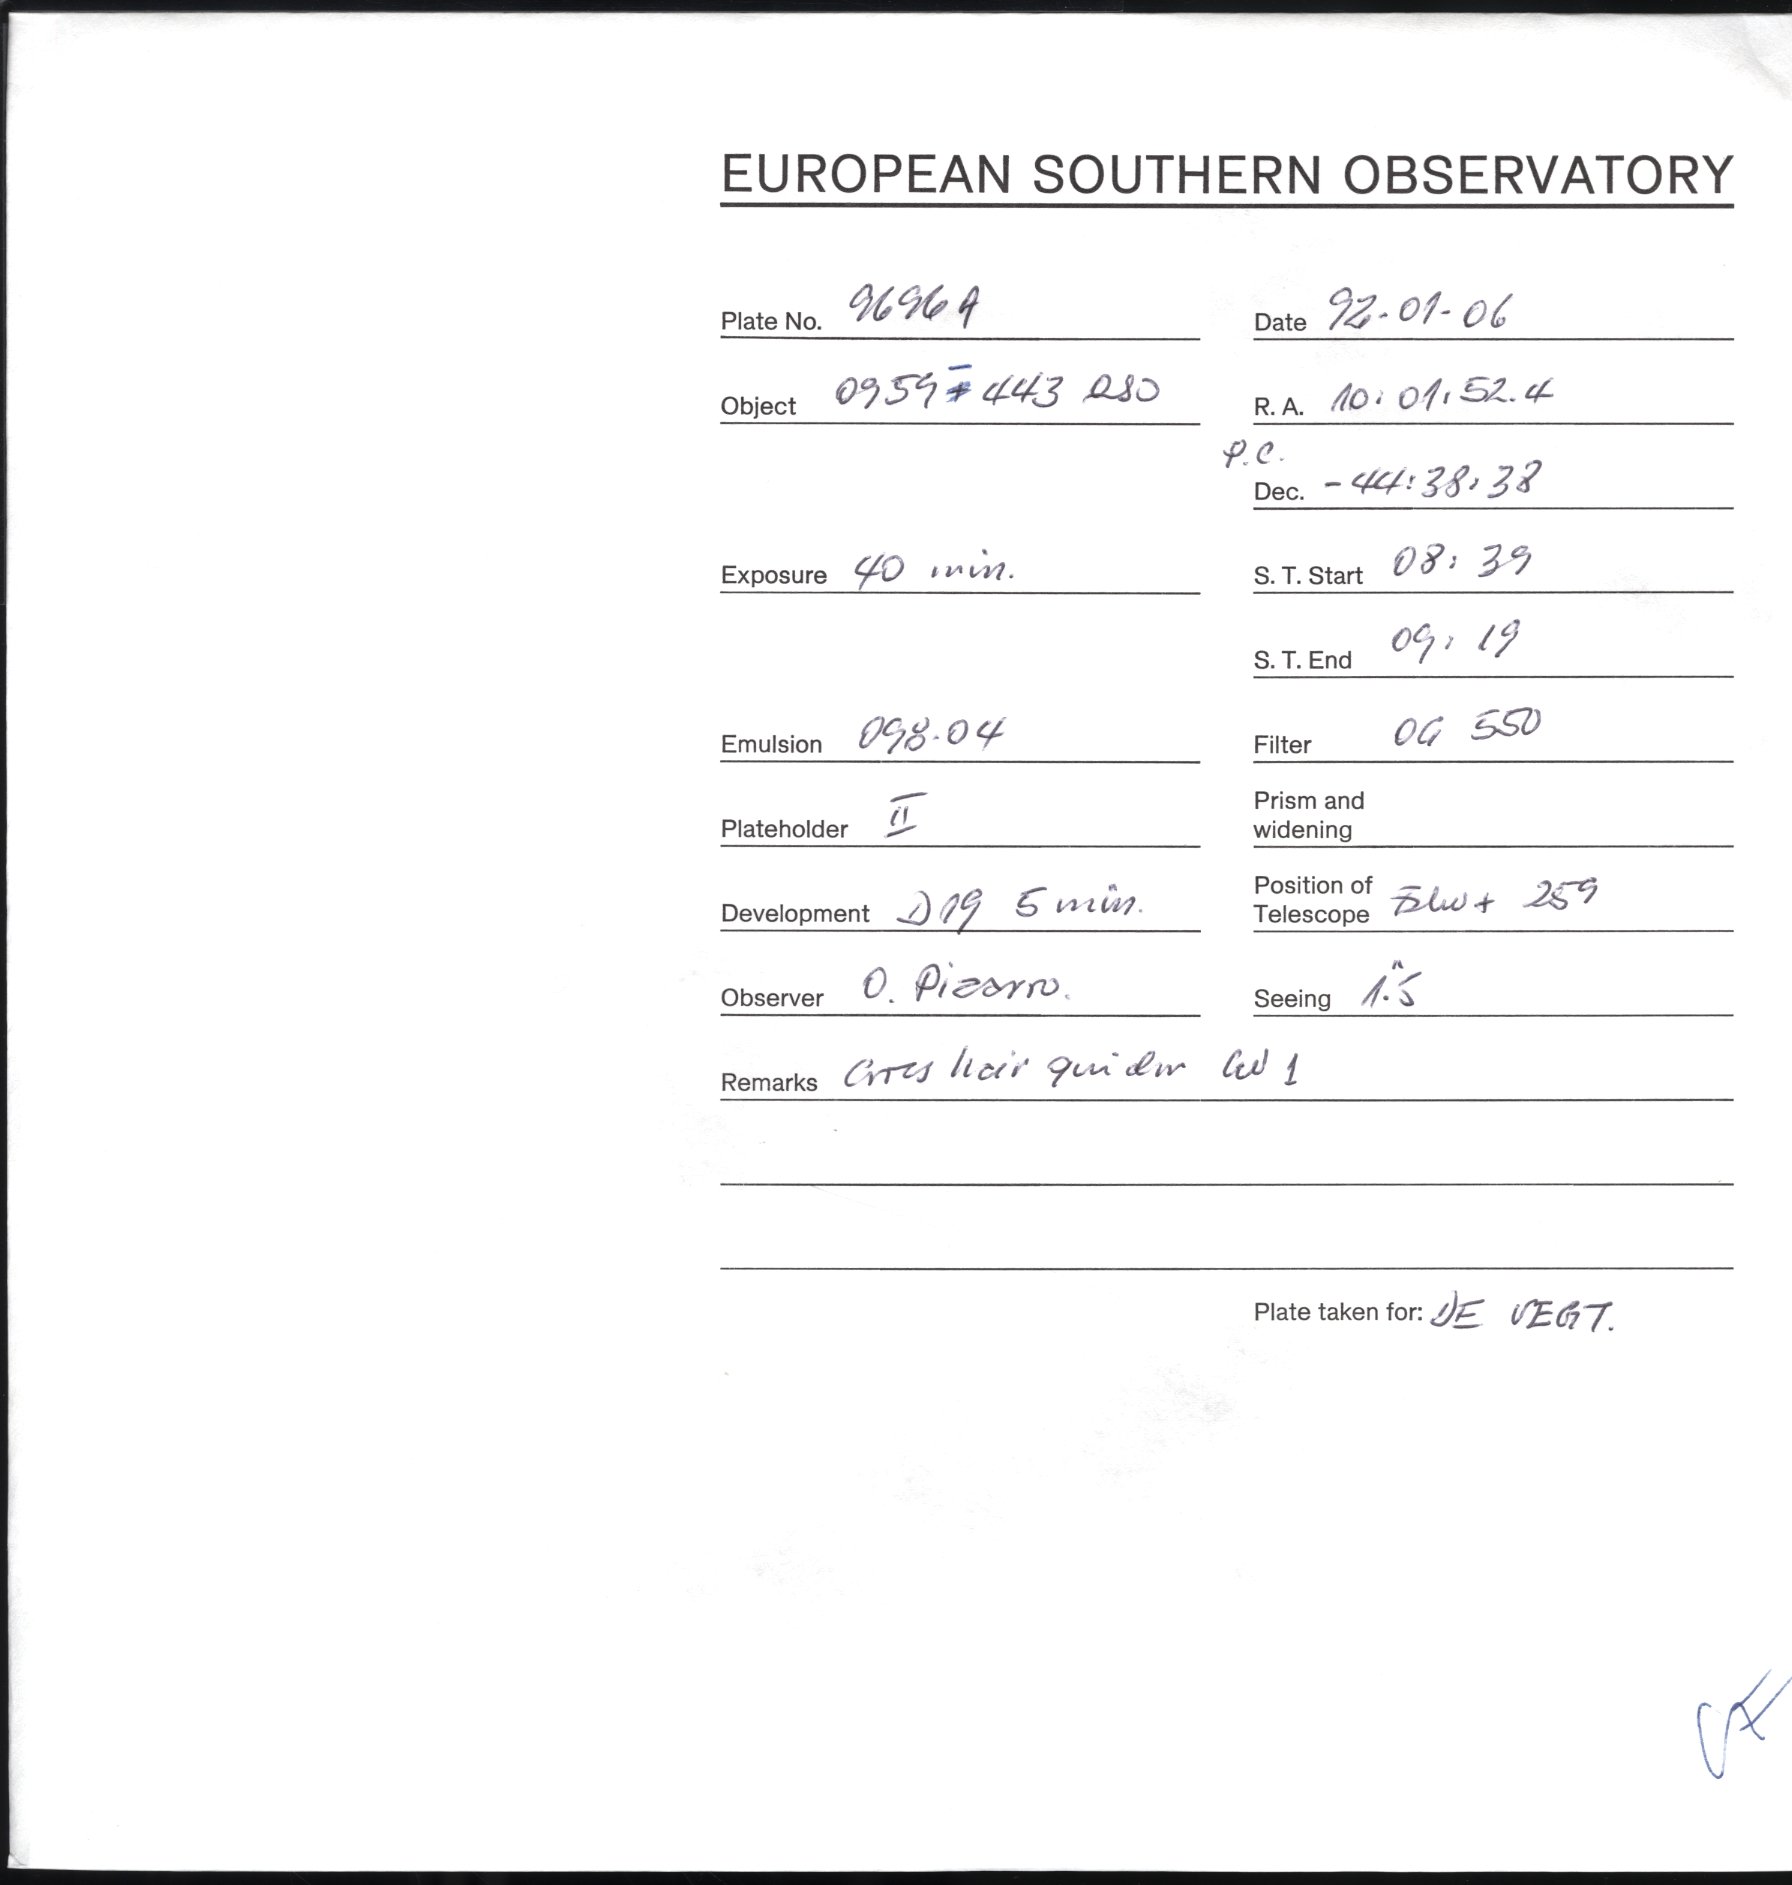 EUROPEAN SOUTHERN OBSERVATORY
Plate No. 9696A Date 92-01-06
Object 0959-443 QSO R. A. 10:01:52.4
P.C.
Dec. -44:38:38
Exposure 40 min. S. T. Start 08:39
S. T. End 09:19
Emulsion 098-04 Filter OG 550
Plateholder II Prism and
widening
Development D19 5 min. Position of
Telescope 259
Observer O. Pizarro. Seeing 1."5
Remarks Cross hair guider 1
Plate taken for: DE VEGT.